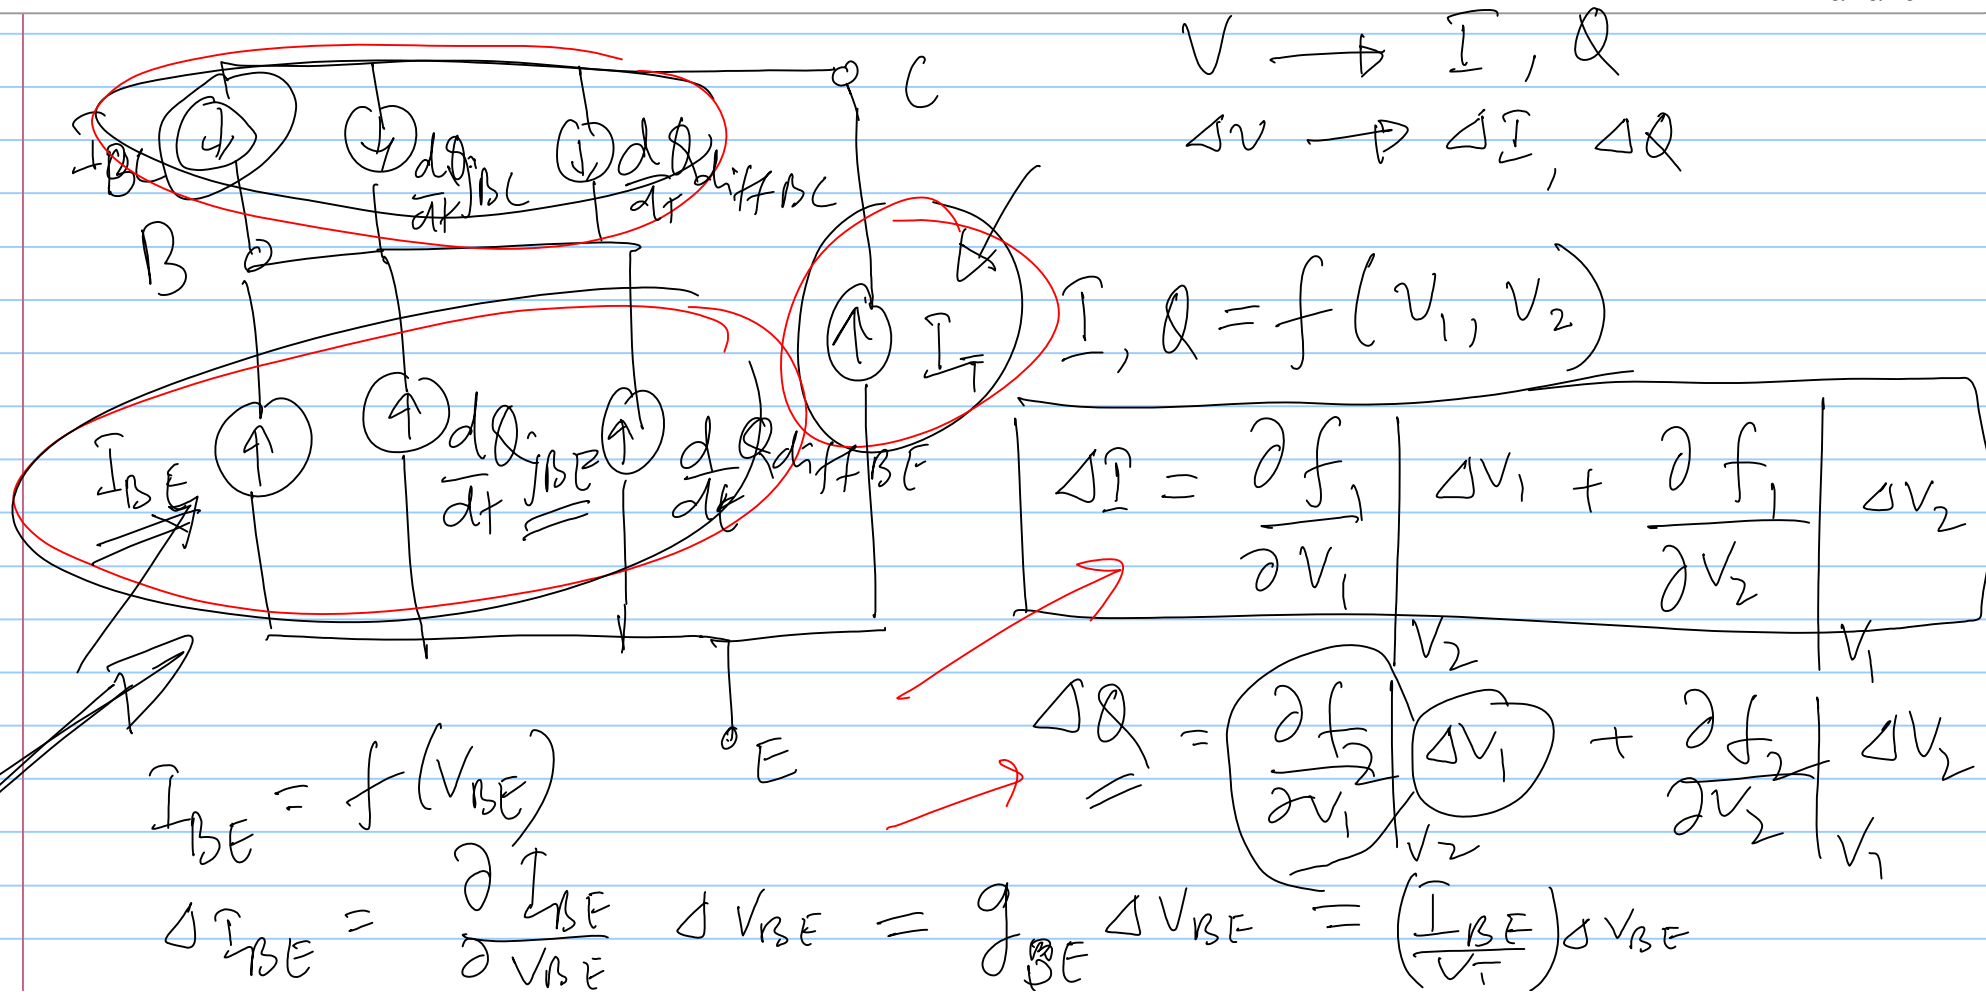 V → I, Q
ΔV → ΔI, ΔQ
C
I_BC
dQ_jBC/dt
d/dt Q_diffBC
B
I_T
I, Q = f(V_1, V_2)
I_BE
dQ_jBE/dt
d/dt Q_diffBE
ΔI = ∂f_1/∂V_1 |_V_2 ΔV_1 + ∂f_1/∂V_2 |_V_1 ΔV_2
E
ΔQ = ∂f_2/∂V_1 |_V_2 ΔV_1 + ∂f_2/∂V_2 |_V_1 ΔV_2
I_BE = f(V_BE)
ΔI_BE = ∂I_BE/∂V_BE ΔV_BE = g_BE ΔV_BE = (I_BE/V_T) ΔV_BE